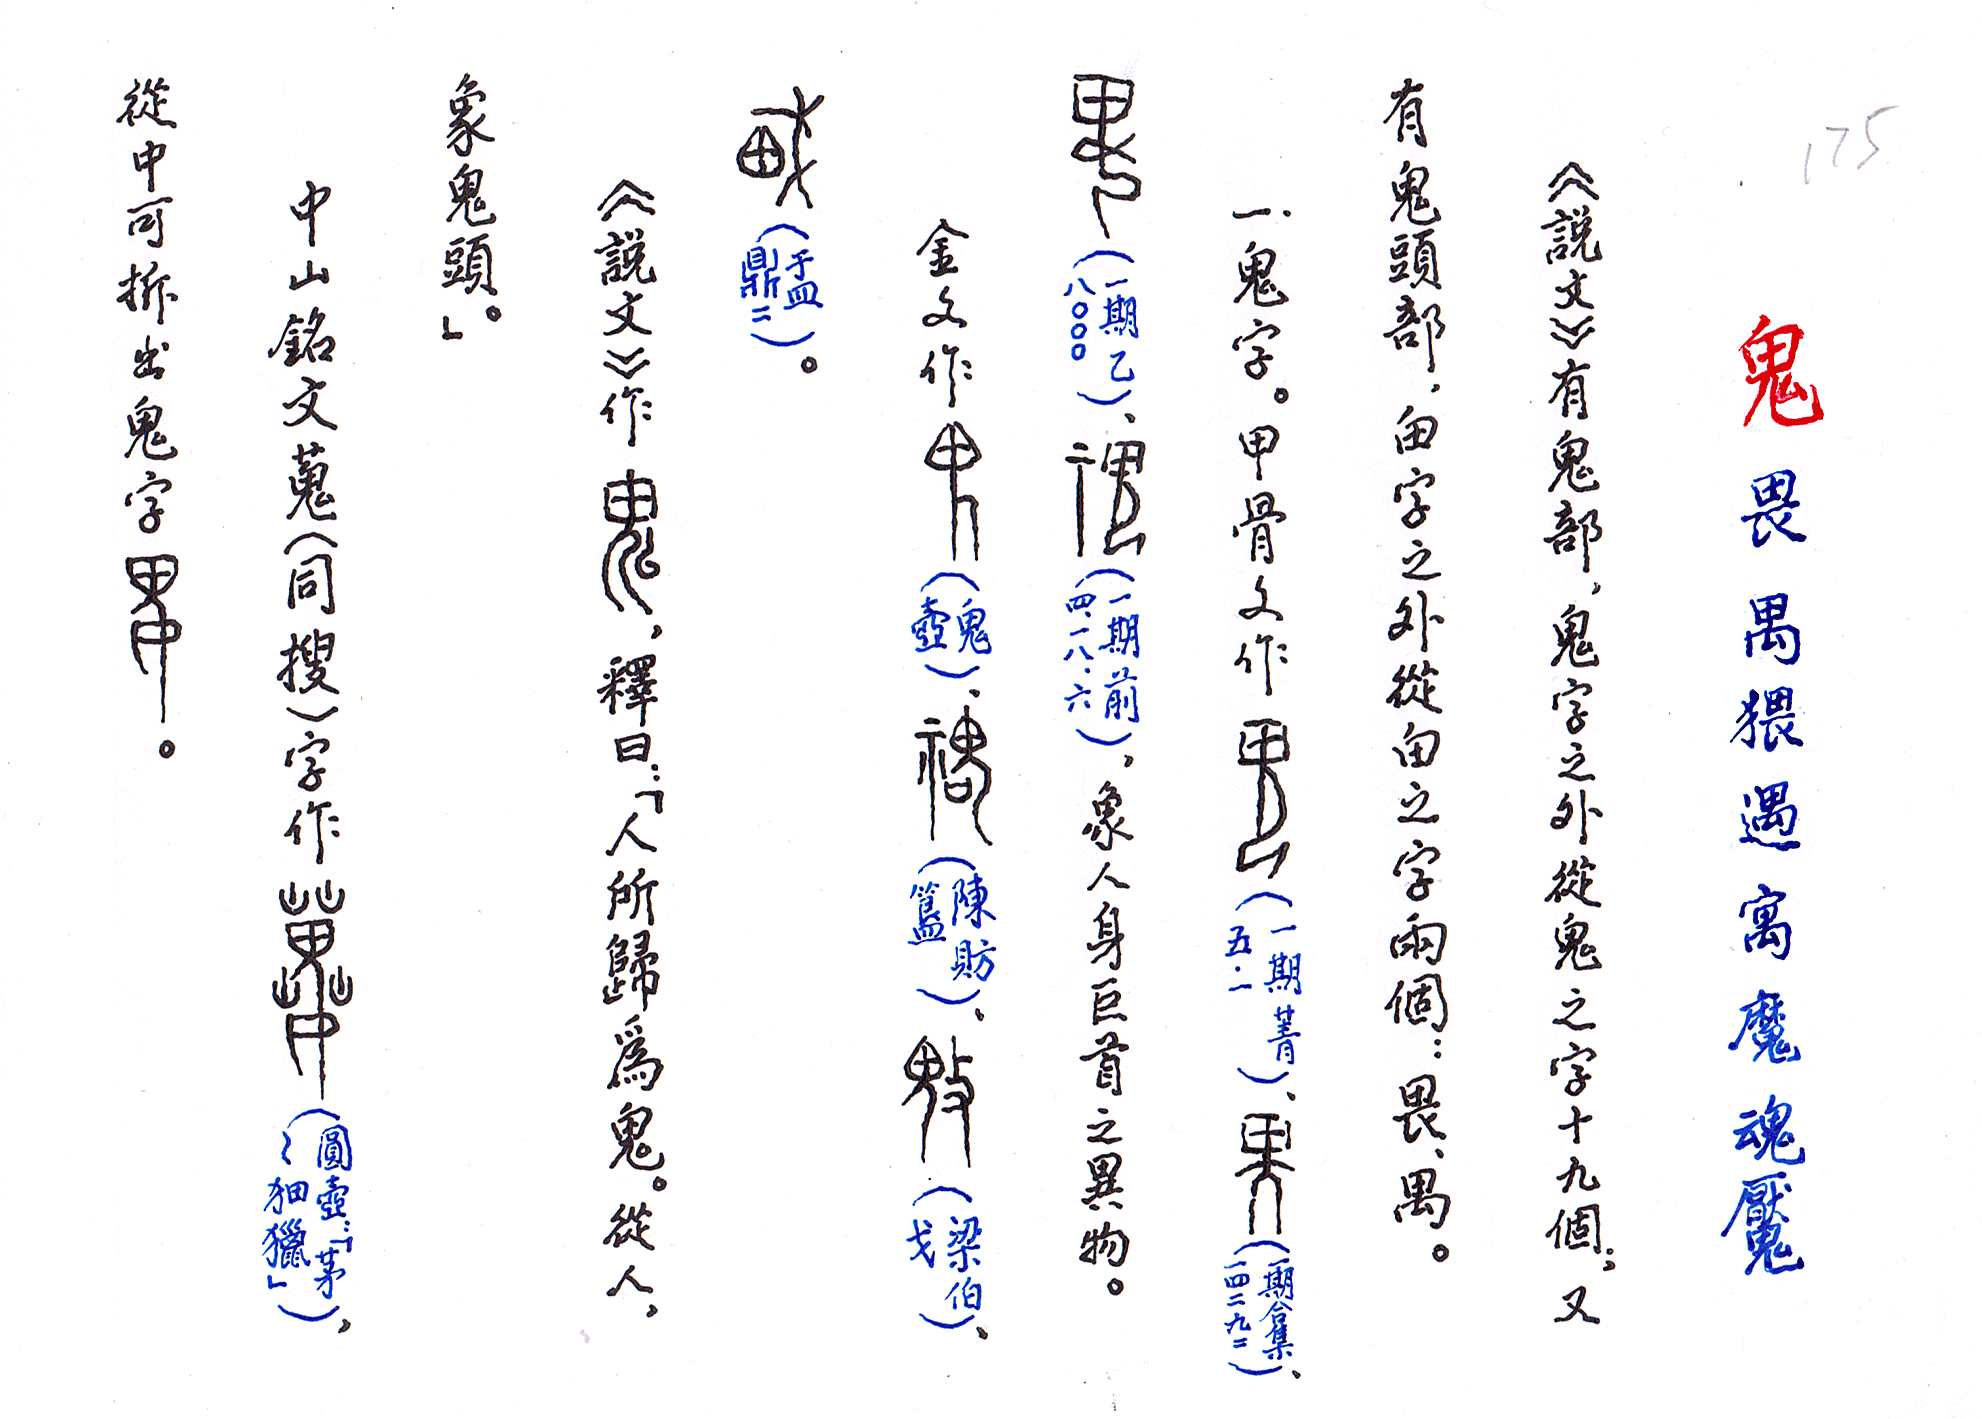 175
鬼 畏 禺 猥 遇 寓 魔 魂 魘
《說文》有鬼部，鬼字之外從鬼之字十九個；又
有鬼頭部，甶字之外從甶之字兩個：畏、禺。
一．鬼字。甲骨文作（一期菁五．一）、（一期合集一四二九二）、
（一期乙八〇〇〇）、（一期前四．一八．六），象人身巨首之異物。
金文作（鬼壺）、（陳肪簋）、（梁伯戈）、
（于盂鼎二）。
《說文》作，釋曰：「人所歸為鬼。從人，
象鬼頭。」
中山銘文蒐（同搜）字作（圓壺：「茅蒐畋獵」），
從中可拆出鬼字。